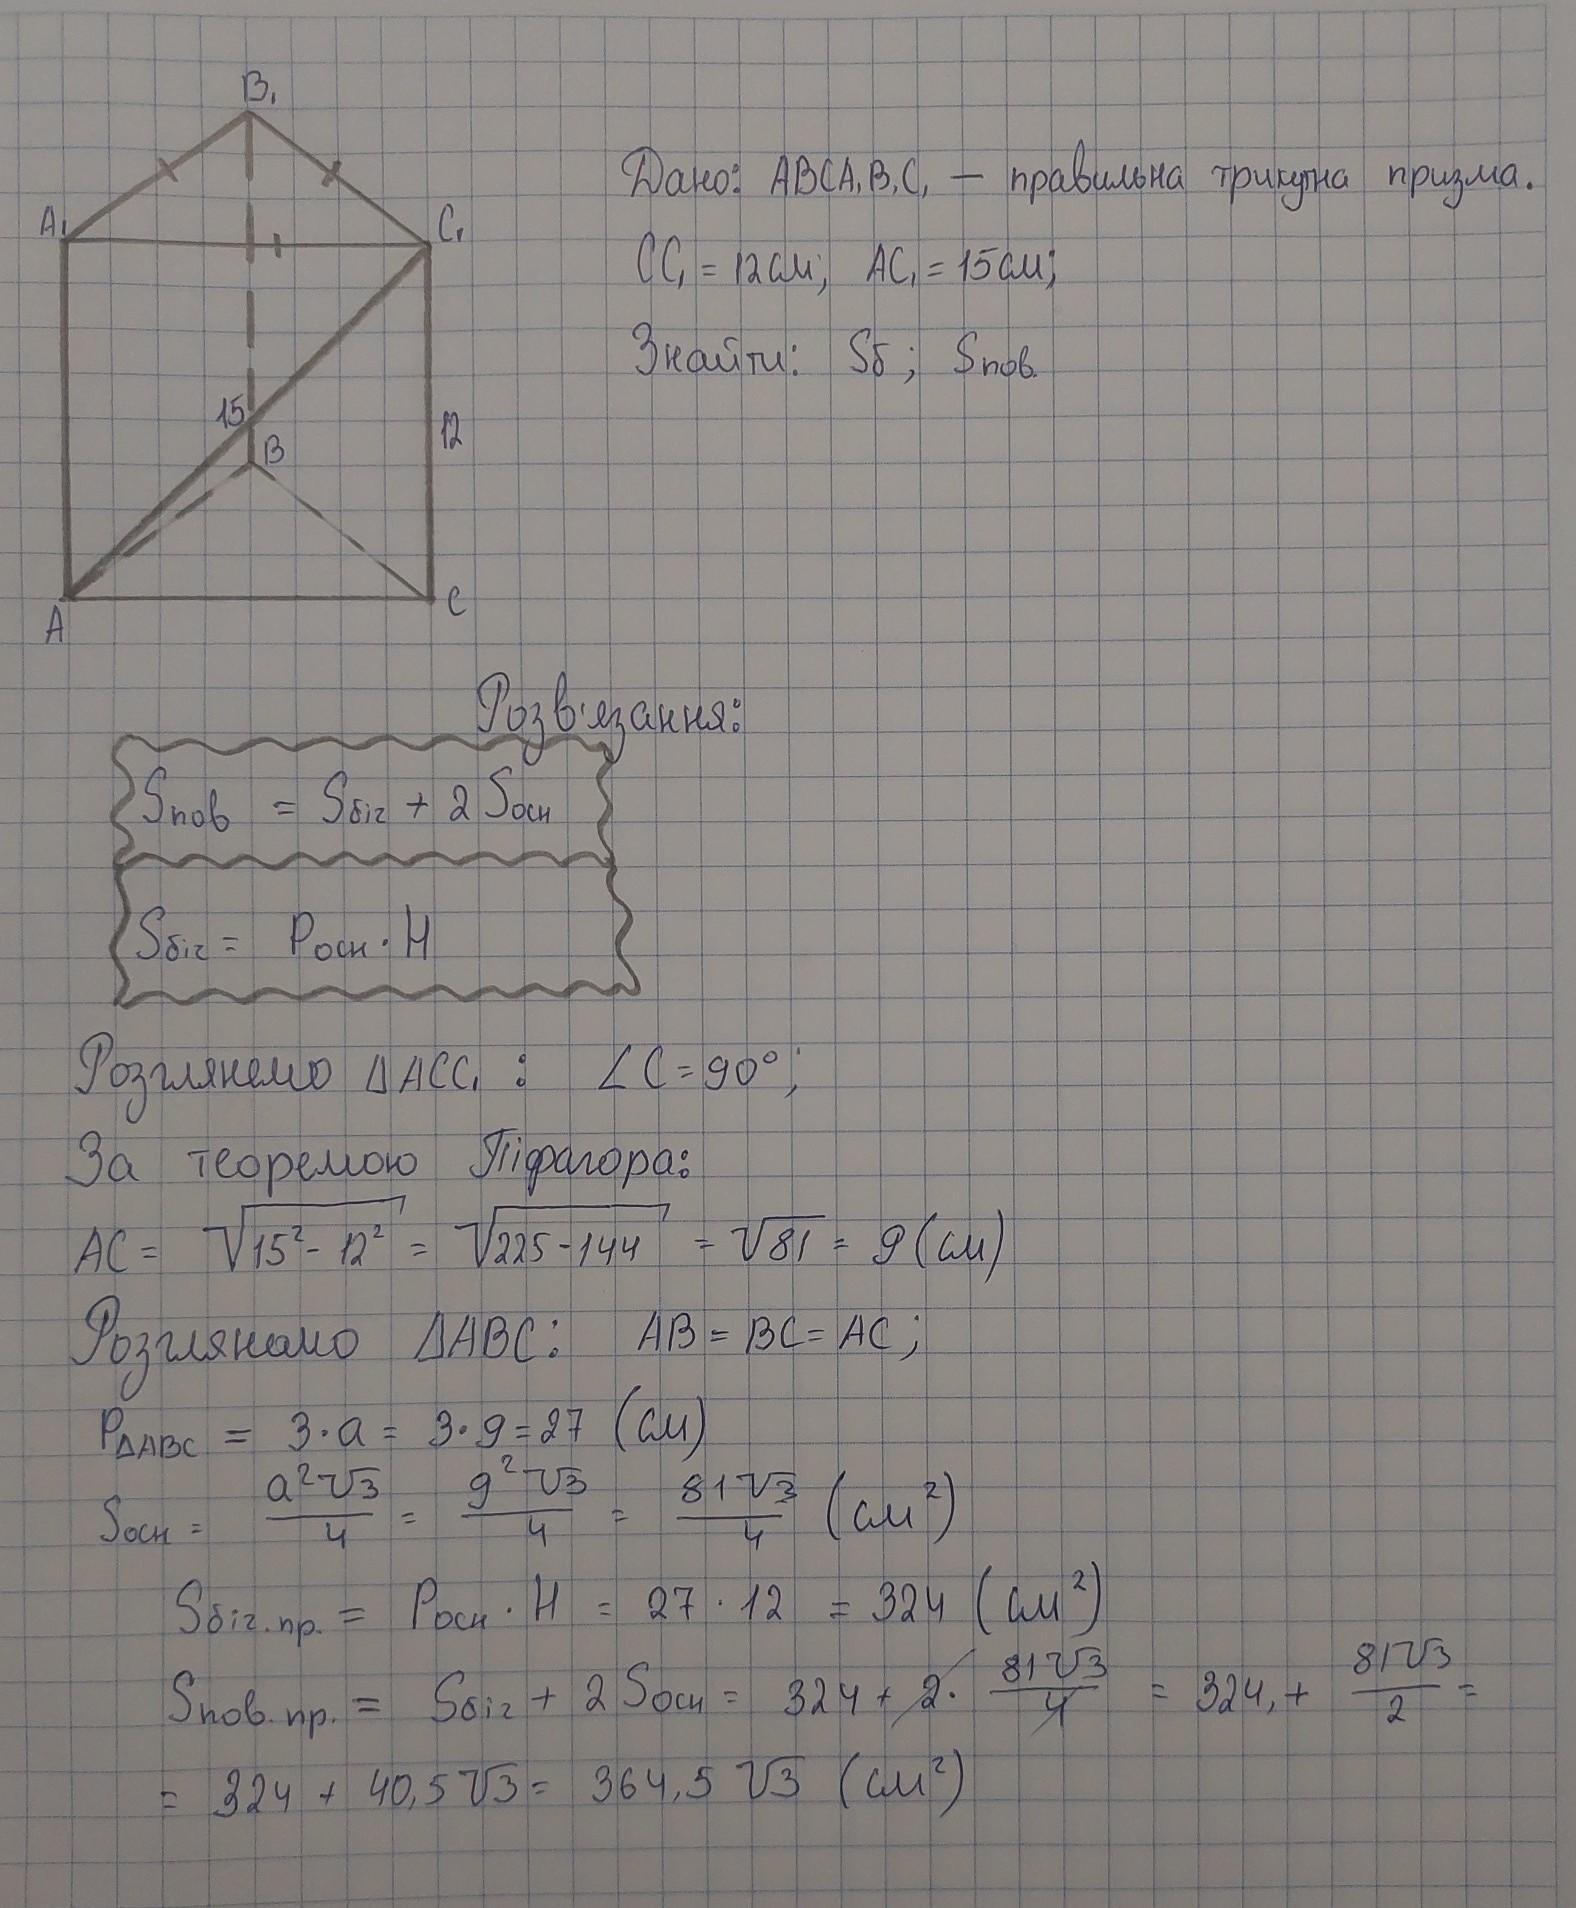 B₁
A₁
C₁
15
B
12
A
C
Дано: ABCA₁B₁C₁ — правильна трикутна призма.
CC₁ = 12см; AC₁ = 15см;
Знайти: Sб; Sпов.
Розв'язання:
Sпов = Sбіг + 2 Sосн
Sбіг = Pосн · H
Розглянемо ΔACC₁ : ∠C = 90°;
За теоремою Піфагора:
AC = √15² - 12² = √225 - 144 = √81 = 9 (см)
Розглянемо ΔABC: AB = BC = AC;
PΔABC = 3 · a = 3 · 9 = 27 (см)
Sосн = a²√3/4 = 9²√3/4 = 81√3/4 (см²)
Sбіг.пр. = Pосн · H = 27 · 12 = 324 (см²)
Sпов.пр. = Sбіг + 2 Sосн = 324 + 2 · 81√3/4 = 324, + 81√3/2 =
= 324 + 40,5√3 = 364,5 √3 (см²)